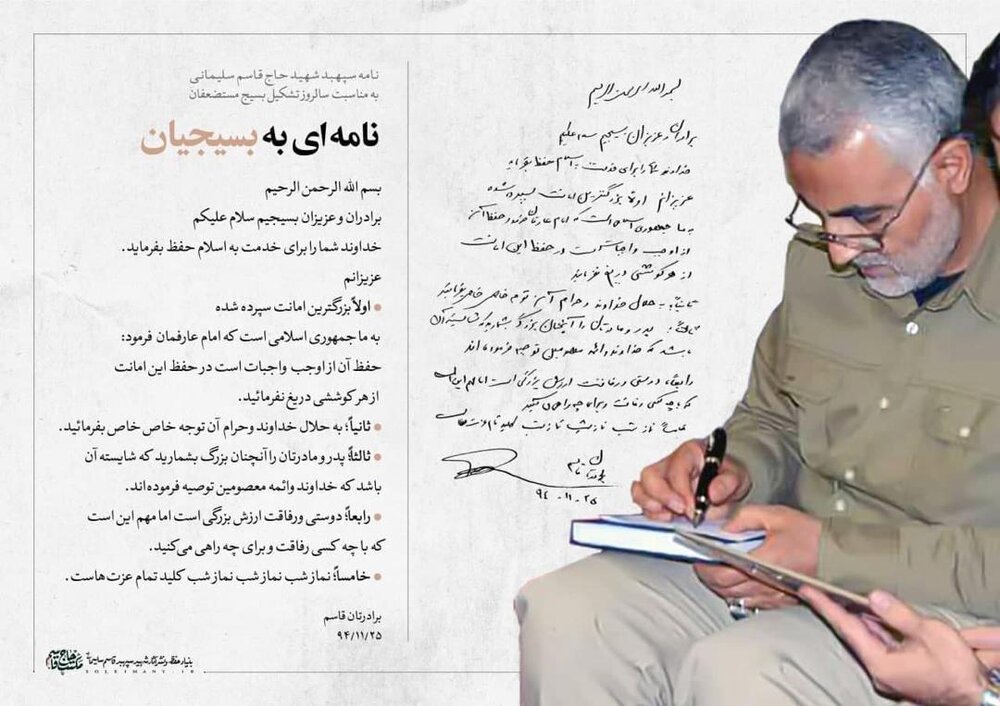 نامه سپهبد شهید حاج قاسم سلیمانی
به مناسبت سالروز تشکیل بسیج مستضعفان
نامه ای به بسیجیان
بسم الله الرحمن الرحیم
برادران و عزیزان بسیجیم سلام علیکم
خداوند شما را برای خدمت به اسلام حفظ بفرماید.
عزیزانم
● اولاً بزرگترین امانت سپرده شده
به ما جمهوری اسلامی است که امام عارفمان فرمود:
حفظ آن از اوجب واجبات است در حفظ این امانت
از هر کوششی دریغ نفرمائید.
● ثانیاً؛ به حلال خداوند وحرام آن توجه خاص خاص بفرمائید.
● ثالثاً؛ پدر و مادرتان را آنچنان بزرگ بشمارید که شایسته آن
باشد که خداوند وائمه معصومین توصیه فرموده‌اند.
● رابعاً؛ دوستی ورفاقت ارزش بزرگی است اما مهم این است
که با چه کسی رفاقت و برای چه راهی می‌کنید.
● خامساً؛ نماز شب نماز شب نماز شب کلید تمام عزت هاست.
برادرتان قاسم
۹۴/۱۱/۲۵
بسم الله الرحمن الرحیم
برادران و عزیزان بسیجیم سلام علیکم
خداوند شما را برای خدمت به اسلام حفظ بفرماید
عزیزانم اولاً بزرگترین امانت سپرده شده
به ما جمهوری اسلامی است که امام عارفمان فرمود حفظ آن
از اوجب واجبات است در حفظ این امانت
از هر کوششی دریغ نفرمائید
ثانیاً؛ به حلال خداوند و حرام آن توجه خاص خاص بفرمائید
ثالثاً؛ پدر و مادرتان را آنچنان بزرگ بشمارید که شایسته آن
باشد که خداوند وائمه معصومین توصیه فرموده‌اند
رابعاً؛ دوستی ورفاقت ارزش بزرگی است اما مهم این است
که با چه کسی رفاقت و برای چه راهی می‌کنید
خامساً نماز شب نماز شب نماز شب کلید تمام عزت هاست
برادرتان قاسم
۹۴-۱۱-۲۵
بنیاد حفظ و نشر آثار شهید سپهبد قاسم سلیمانی
مکتب حاج قاسم
SOLEIMANY.IR